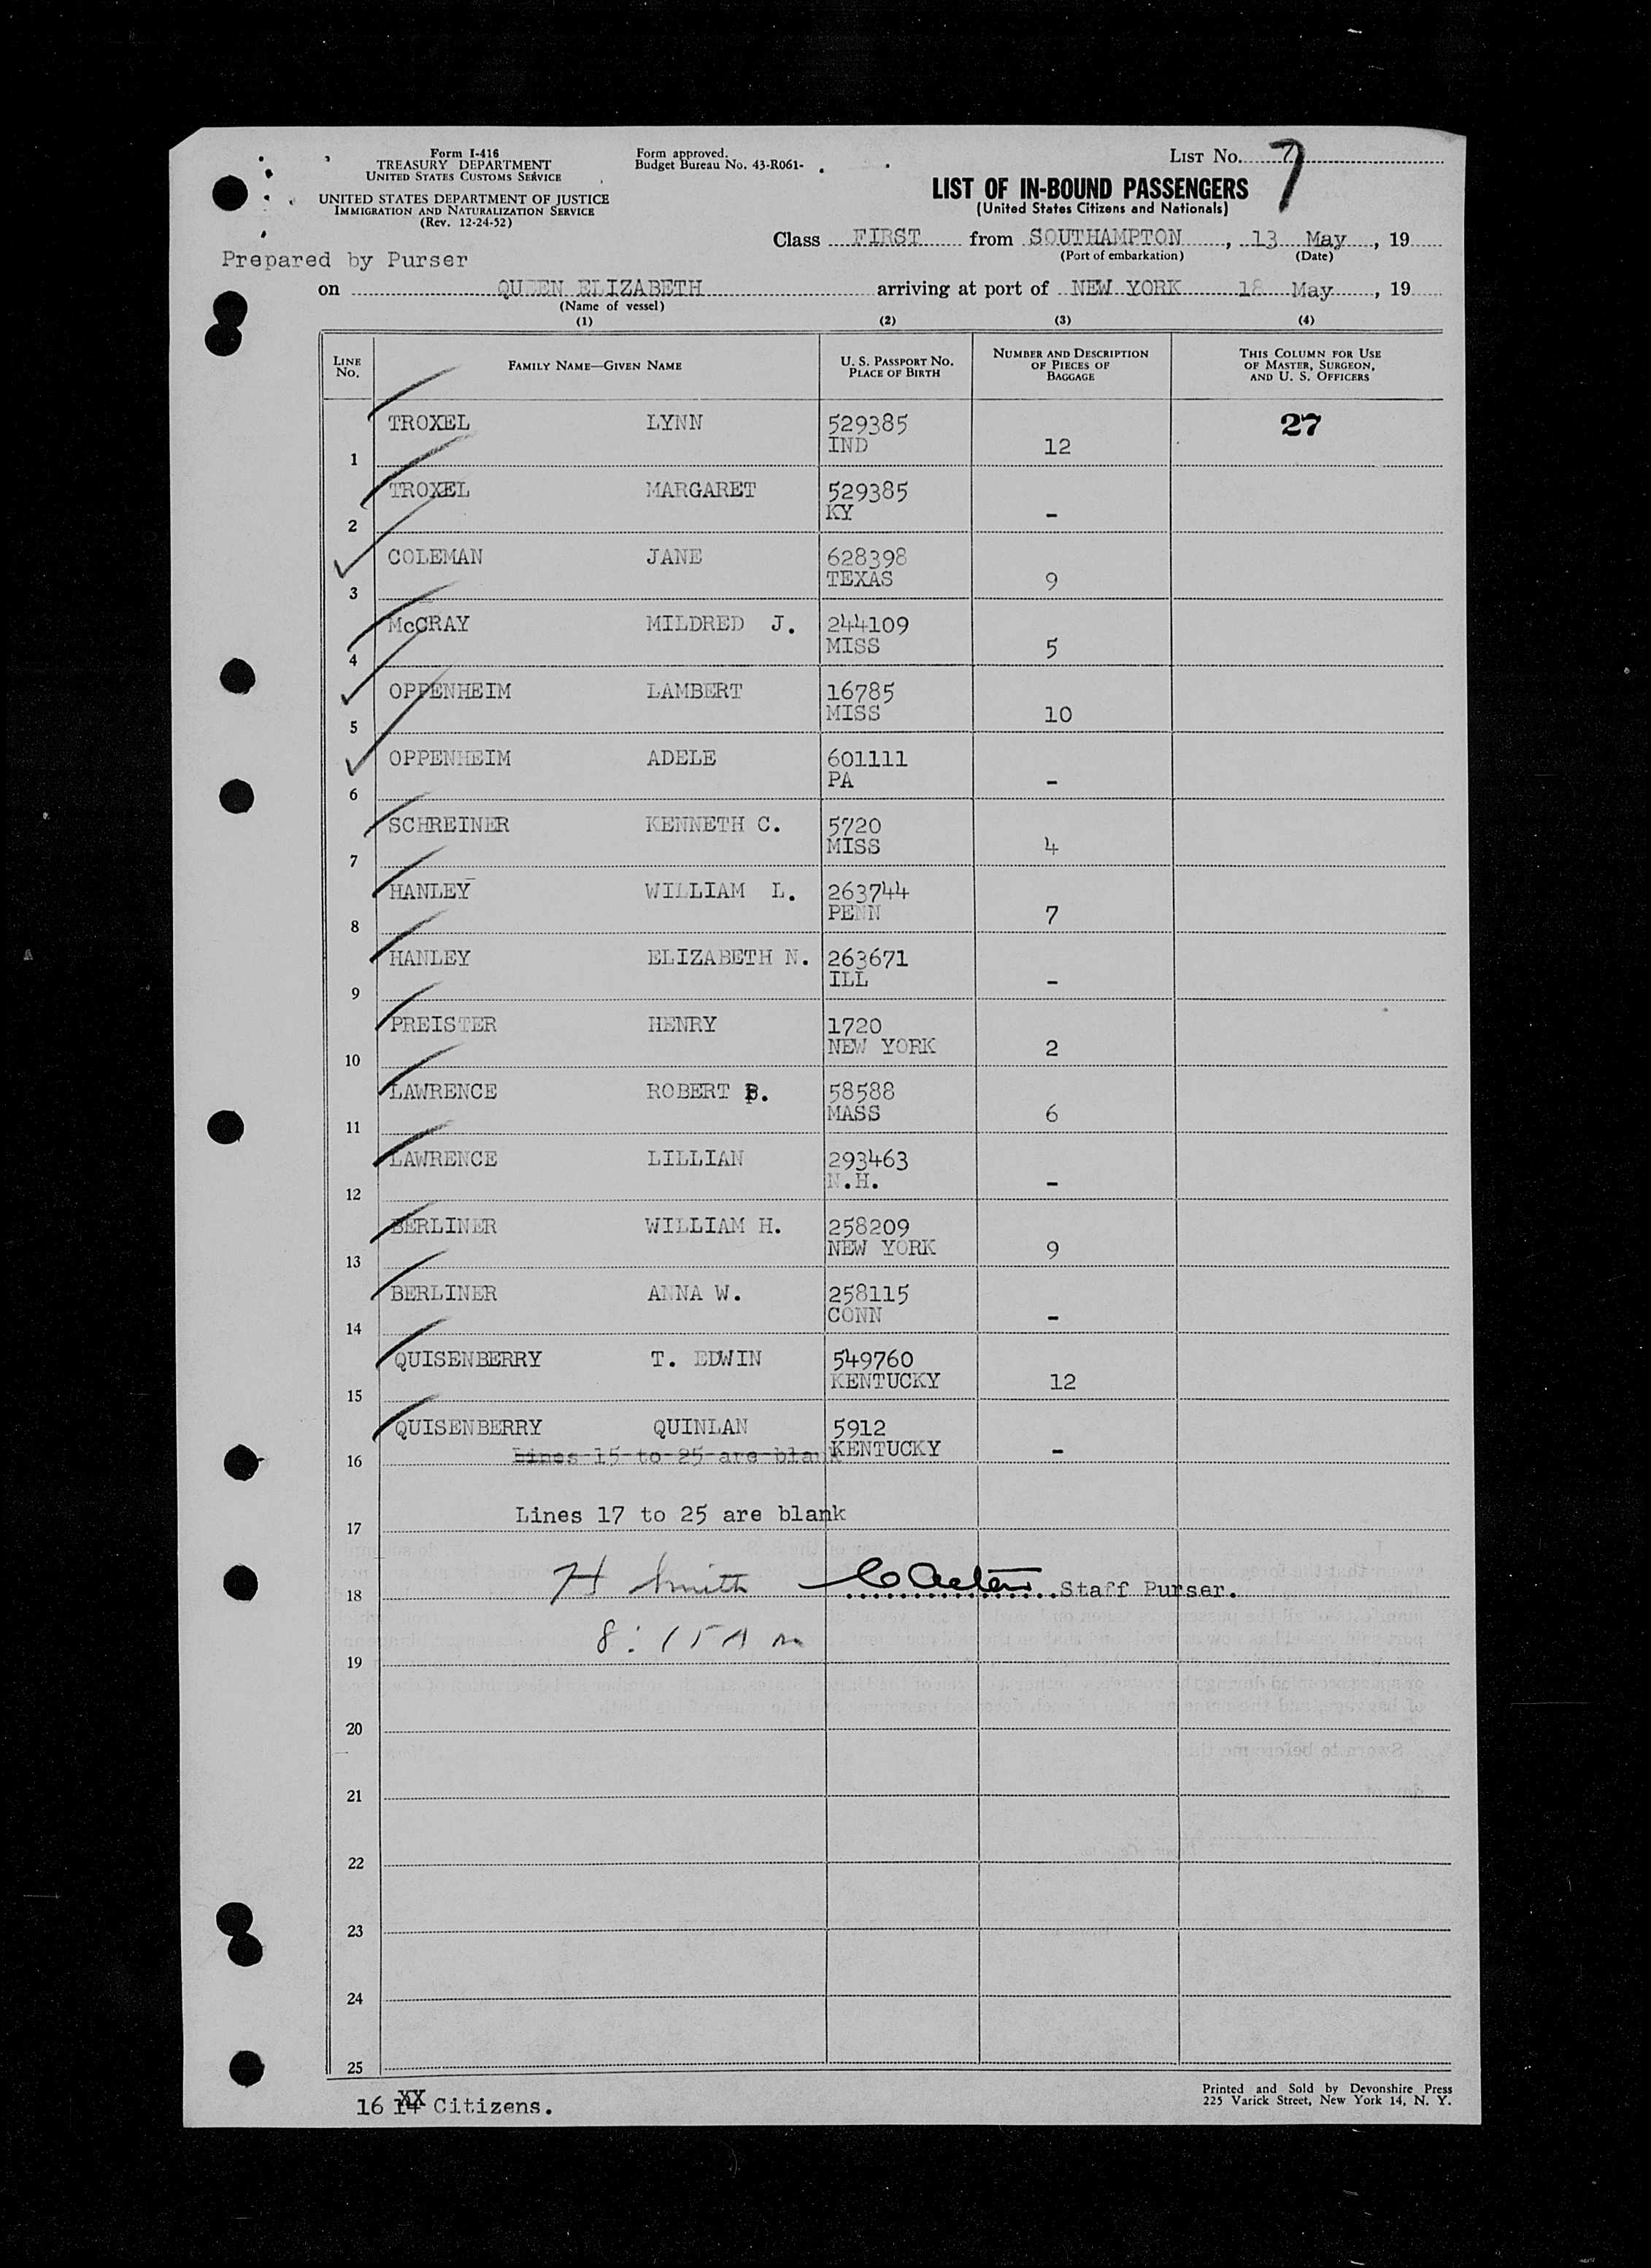 Form I-416
TREASURY DEPARTMENT
UNITED STATES CUSTOMS SERVICE
UNITED STATES DEPARTMENT OF JUSTICE
IMMIGRATION AND NATURALIZATION SERVICE
(Rev. 12-24-52)
Form approved.
Budget Bureau No. 43-R061-
LIST No. 7
LIST OF IN-BOUND PASSENGERS
(United States Citizens and Nationals)
Class FIRST from SOUTHAMPTON, 13 May, 19
(Port of embarkation) (Date)
Prepared by Purser
on QUEEN ELIZABETH arriving at port of NEW YORK 18 May, 19
(Name of vessel)
(1) (2) (3) (4)
LINE No. FAMILY NAME—GIVEN NAME U. S. PASSPORT NO. PLACE OF BIRTH NUMBER AND DESCRIPTION OF PIECES OF BAGGAGE THIS COLUMN FOR USE OF MASTER, SURGEON, AND U. S. OFFICERS
TROXEL LYNN 529385 27
1 IND 12
TROXEL MARGARET 529385
2 KY -
COLEMAN JANE 628398
3 TEXAS 9
McCRAY MILDRED J. 244109
4 MISS 5
OPPENHEIM LAMBERT 16785
5 MISS 10
OPPENHEIM ADELE 601111
6 PA -
SCHREINER KENNETH C. 5720
7 MISS 4
HANLEY WILLIAM L. 263744
8 PENN 7
HANLEY ELIZABETH N. 263671
9 ILL -
PREISTER HENRY 1720
10 NEW YORK 2
LAWRENCE ROBERT B. 58588
11 MASS 6
LAWRENCE LILLIAN 293463
12 N.H. -
BERLINER WILLIAM H. 258209
13 NEW YORK 9
BERLINER ANNA W. 258115
14 CONN -
QUISENBERRY T. EDWIN 549760
15 KENTUCKY 12
QUISENBERRY QUINLAN 5912
16 Lines 15 to 25 are blank KENTUCKY -
Lines 17 to 25 are blank
17
18 H Smith Staff Purser.
19 8:15 A m
20
21
22
23
24
25
16 14 Citizens.
Printed and Sold by Devonshire Press
225 Varick Street, New York 14, N. Y.